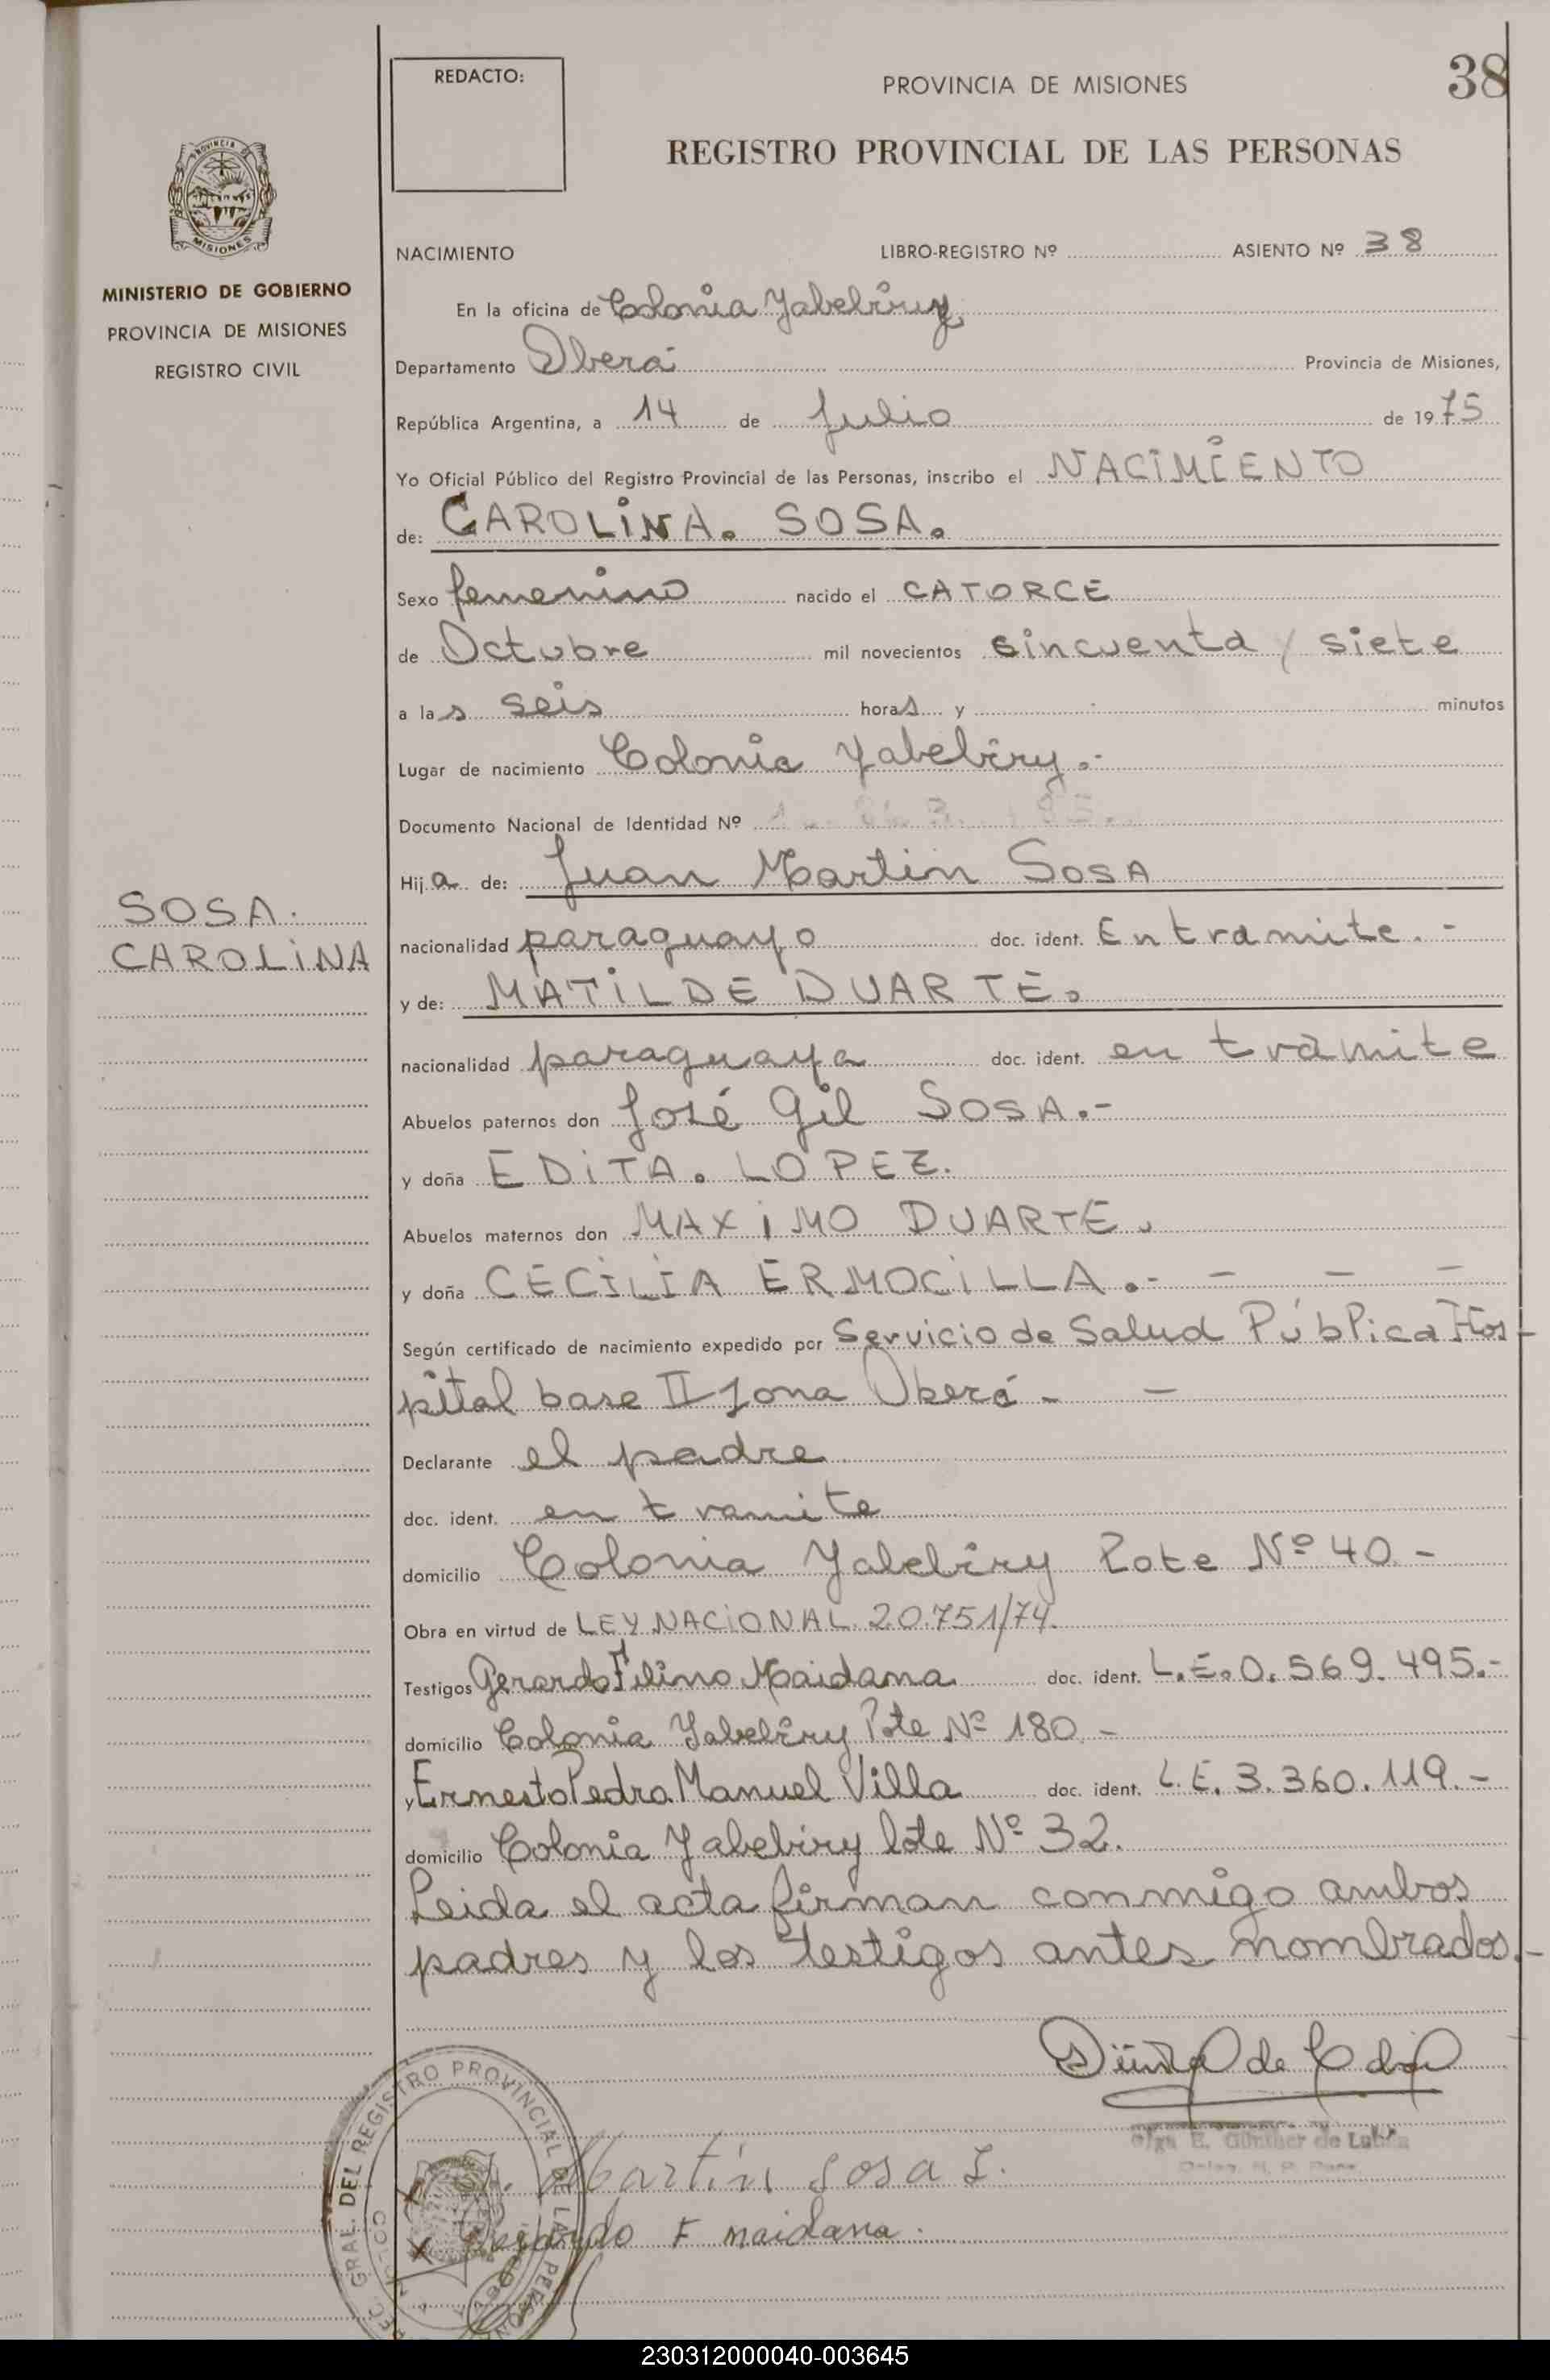 REDACTO:
PROVINCIA DE MISIONES
38
REGISTRO PROVINCIAL DE LAS PERSONAS
MISIONES
MINISTERIO DE GOBIERNO
PROVINCIA DE MISIONES
REGISTRO CIVIL
NACIMIENTO LIBRO-REGISTRO Nº ASIENTO Nº 38
En la oficina de Colonia Yabebiry
Departamento Oberá Provincia de Misiones,
República Argentina, a 14 de Julio de 1975
Yo Oficial Público del Registro Provincial de las Personas, inscribo el NACIMIENTO
de: CAROLINA. SOSA.
Sexo femenino nacido el CATORCE
de Octubre mil novecientos cincuenta y siete
a las seis horas y minutos
Lugar de nacimiento Colonia Yabebiry.-
Documento Nacional de Identidad Nº
Hija de: Juan Martin SOSA
SOSA.
CAROLINA
nacionalidad paraguayo doc. ident. En tramite.-
y de: MATILDE DUARTE.
nacionalidad paraguaya doc. ident. en tràmite
Abuelos paternos don José Gil SOSA.-
y doña EDITA. LOPEZ.
Abuelos maternos don MAXIMO DUARTE.
y doña CECILIA ERMOCILLA.- - - -
Según certificado de nacimiento expedido por Servicio de Salud Pública Hos-
pital base II zona Oberá - -
Declarante el padre
doc. ident. en tramite
domicilio Colonia Yabebiry Lote Nº 40 -
Obra en virtud de LEY NACIONAL 20.751/74.
Testigos Gerardo Filino Maidana doc. ident. L.E. 0.569.495.-
domicilio Colonia Yabebiry Lote Nº 180 -
y Ernesto Pedro Manuel Villa doc. ident. L.E. 3.360.119.-
domicilio Colonia Yabebiry lote Nº 32.
Leida el acta firman conmigo ambos
padres y los testigos antes nombrados.-
Olga E. Günther de
Martín Sosa L.
Gerardo F maidana.
GRAL. DEL REGISTRO PROVINCIAL DE LAS
230312000040-003645